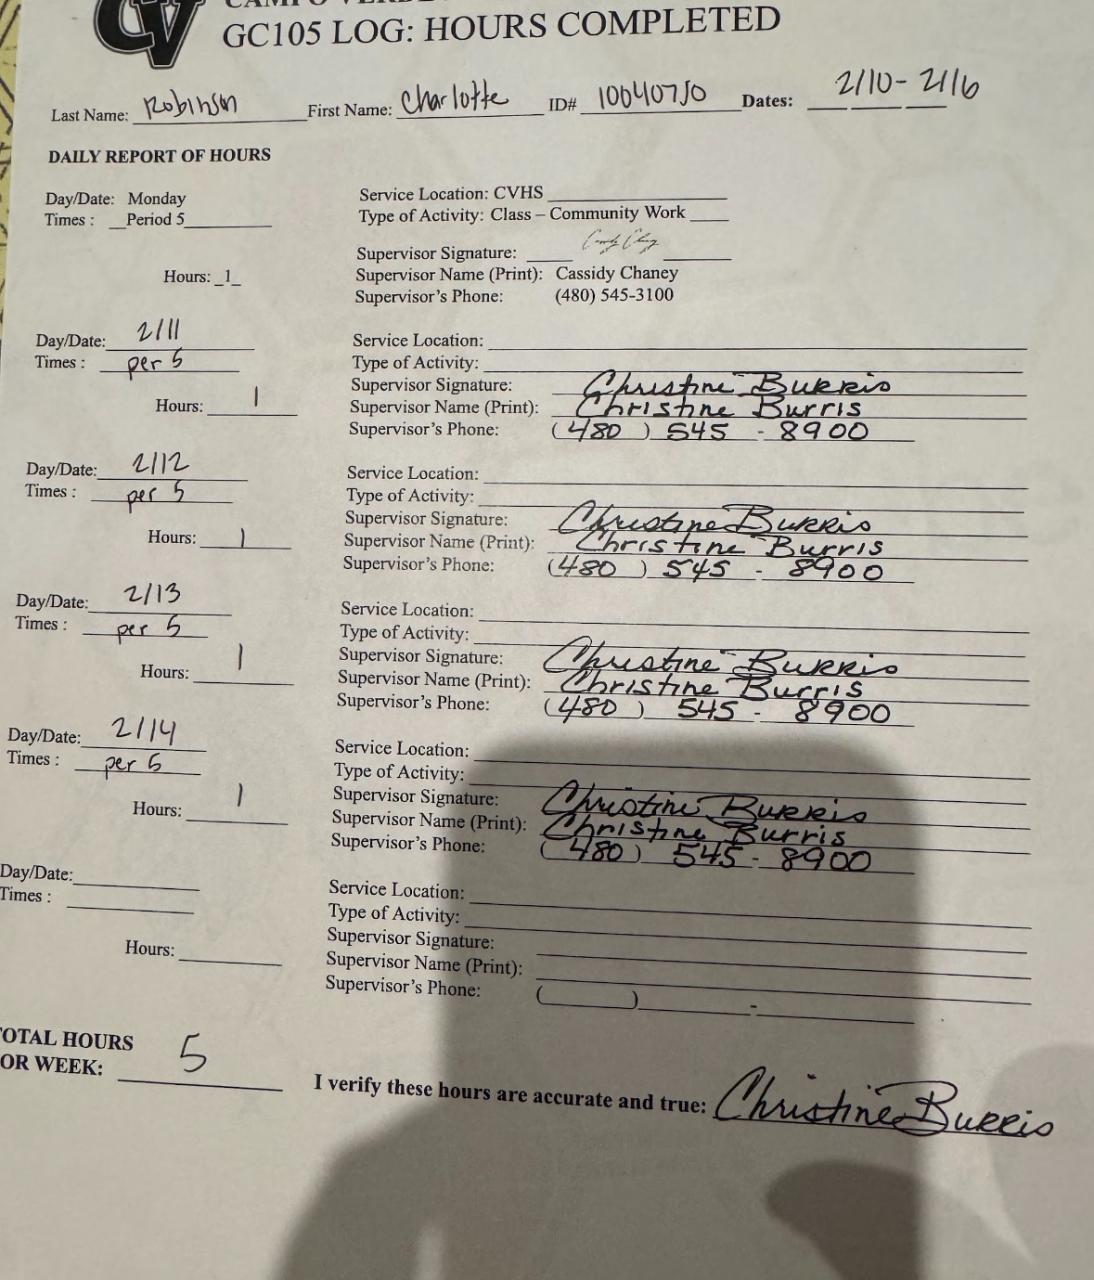 CV
GC105 LOG: HOURS COMPLETED
Last Name: Robinson First Name: Charlotte ID# 10040750 Dates: 2/10 - 2/16
DAILY REPORT OF HOURS
Day/Date: Monday
Times : Period 5
Hours: 1
Service Location: CVHS
Type of Activity: Class – Community Work
Supervisor Signature:
Supervisor Name (Print): Cassidy Chaney
Supervisor's Phone: (480) 545-3100
Day/Date: 2/11
Times : per 5
Hours: 1
Service Location:
Type of Activity:
Supervisor Signature: Christine Burris
Supervisor Name (Print): Christine Burris
Supervisor's Phone: (480) 545 - 8900
Day/Date: 2/12
Times : per 5
Hours: 1
Service Location:
Type of Activity:
Supervisor Signature: Christine Burris
Supervisor Name (Print): Christine Burris
Supervisor's Phone: (480) 545 - 8900
Day/Date: 2/13
Times : per 5
Hours: 1
Service Location:
Type of Activity:
Supervisor Signature: Christine Burris
Supervisor Name (Print): Christine Burris
Supervisor's Phone: (480) 545 - 8900
Day/Date: 2/14
Times : per 5
Hours: 1
Service Location:
Type of Activity:
Supervisor Signature: Christine Burris
Supervisor Name (Print): Christine Burris
Supervisor's Phone: (480) 545 - 8900
Day/Date:
Times :
Hours:
Service Location:
Type of Activity:
Supervisor Signature:
Supervisor Name (Print):
Supervisor's Phone: ( ) -
OTAL HOURS
OR WEEK: 5
I verify these hours are accurate and true: Christine Burris